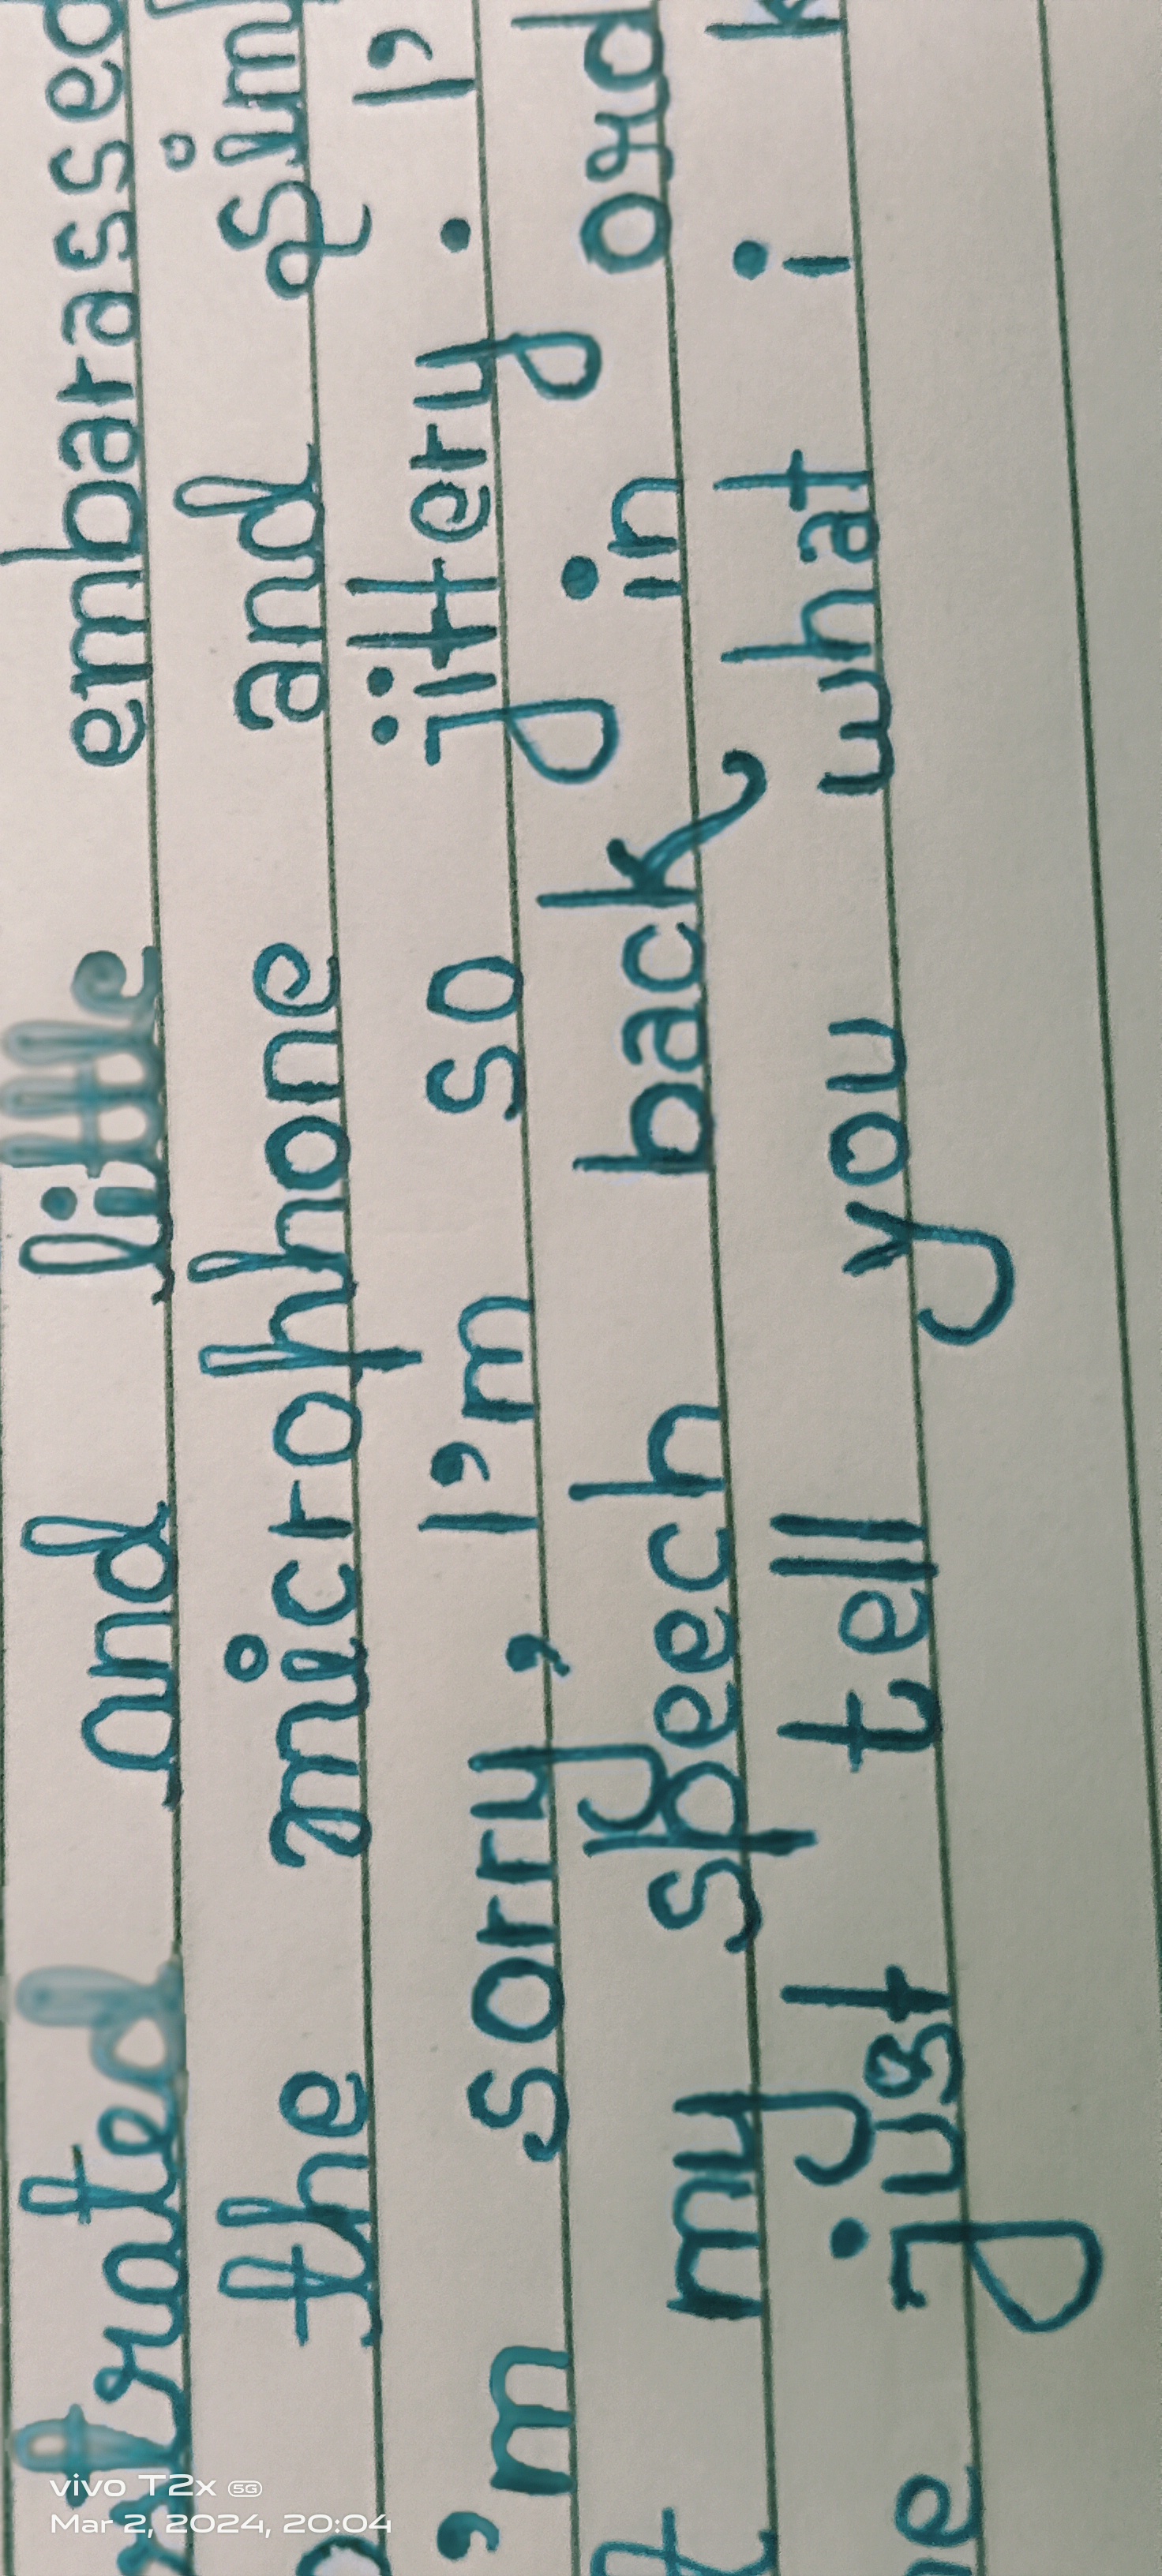 and little embarassed
the microphone and
'm sorry, I'm so jittery. I'
my speech back in
just tell you what i
vivo T2x 5G
Mar 2, 2024, 20:04